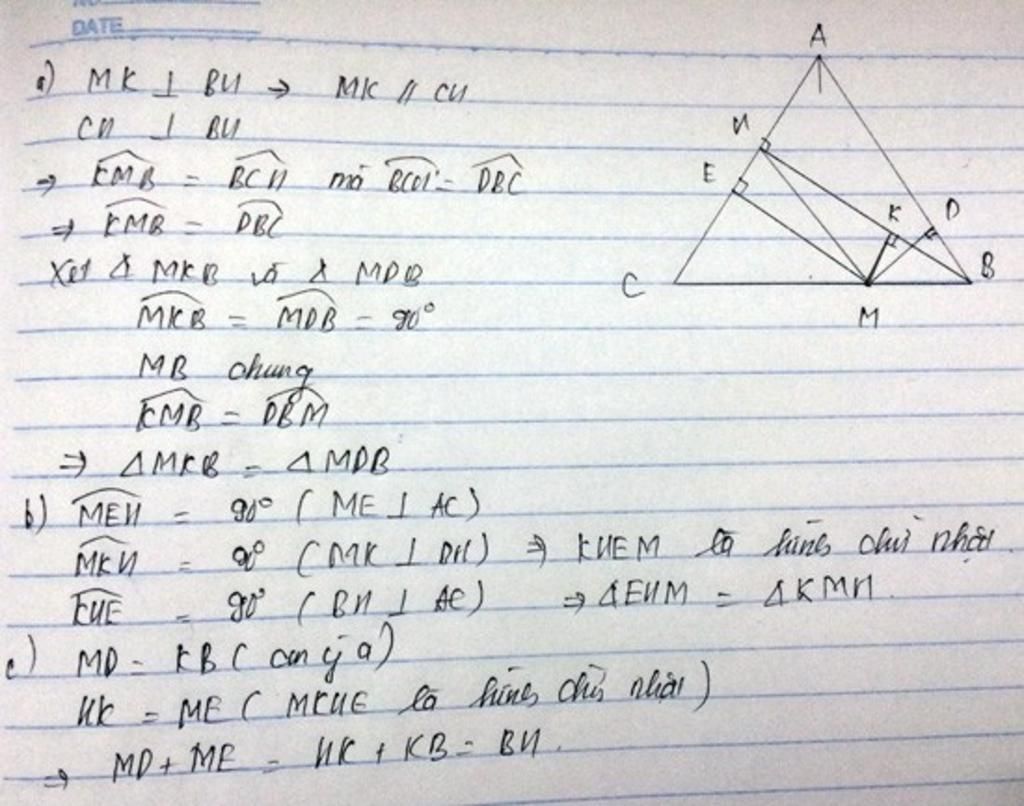 DATE
a) MK ⊥ BH → MK // CH
CH ⊥ BH
⇒ KMB = BCH mà BCH = DBC
⇒ KMB = DBC
Xét Δ MKB và Δ MDB
MKB = MDB = 90°
MB chung
KMB = DBM
⇒ ΔMKB = ΔMDB
b) MEH = 90° ( ME ⊥ AC )
MKH = 90° ( MK ⊥ BH ) ⇒ KHEM là hình chữ nhật
KHE = 90° ( BH ⊥ AC ) ⇒ ΔEHM = ΔKMH.
c) MD = KB ( a )
HK = ME ( MKHE là hình chữ nhật )
⇒ MD + ME = HK + KB = BH.
A
H
E
K
D
C
B
M